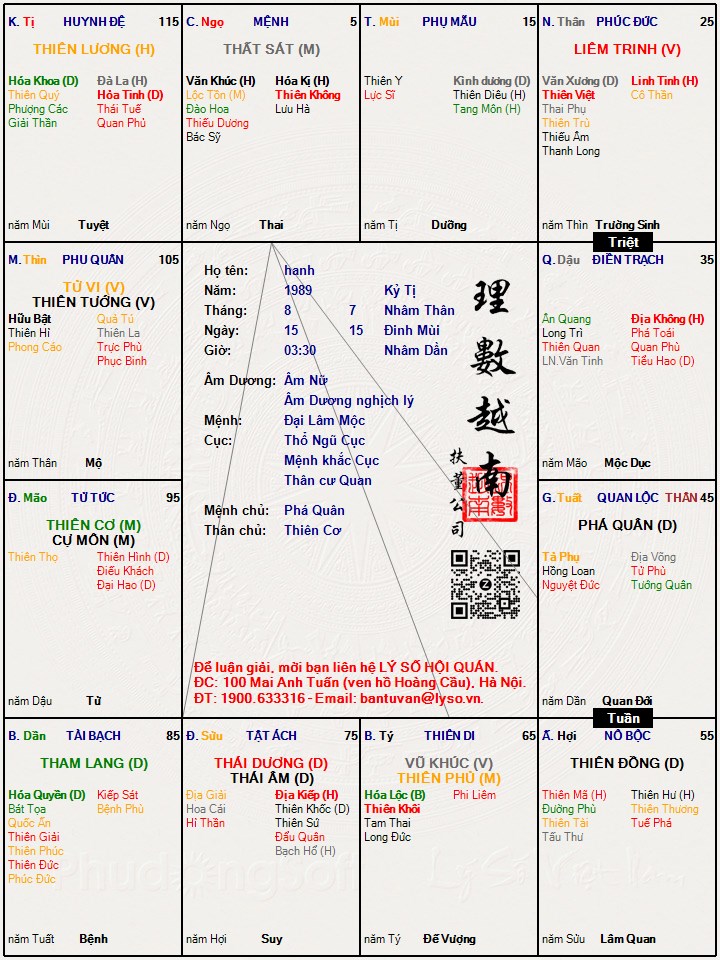 K. Tị HUYNH ĐỆ 115
THIÊN LƯƠNG (H)
Hóa Khoa (D) Đà La (H)
Thiên Quý Hỏa Tinh (D)
Phượng Các Thái Tuế
Giải Thần Quan Phủ
năm Mùi Tuyệt
C. Ngọ MỆNH 5
THẤT SÁT (M)
Văn Khúc (H) Hóa Kị (H)
Lộc Tồn (M) Thiên Không
Đào Hoa Lưu Hà
Thiếu Dương
Bác Sỹ
năm Ngọ Thai
T. Mùi PHỤ MẪU 15
Thiên Y Kình dương (D)
Lực Sĩ Thiên Diêu (H)
Tang Môn (H)
năm Tị Dưỡng
N. Thân PHÚC ĐỨC 25
LIÊM TRINH (V)
Văn Xương (D) Linh Tinh (H)
Thiên Việt Cô Thần
Thai Phụ
Thiên Trù
Thiếu Âm
Thanh Long
năm Thìn Trường Sinh
Triệt
M. Thìn PHU QUÂN 105
TỬ VI (V)
THIÊN TƯỚNG (V)
Hữu Bật Quả Tú
Thiên Hỉ Thiên La
Phong Cáo Trực Phù
Phục Binh
năm Thân Mộ
Họ tên: hanh
Năm: 1989 Kỷ Tị
Tháng: 8 7 Nhâm Thân
Ngày: 15 15 Đinh Mùi
Giờ: 03:30 Nhâm Dần
Âm Dương: Âm Nữ
Âm Dương nghịch lý
Mệnh: Đại Lâm Mộc
Cục: Thổ Ngũ Cục
Mệnh khắc Cục
Thân cư Quan
Mệnh chủ: Phá Quân
Thân chủ: Thiên Cơ
理數越南
扶董公司
Để luận giải, mời bạn liên hệ LÝ SỐ HỘI QUÁN.
ĐC: 100 Mai Anh Tuấn (ven hồ Hoàng Cầu), Hà Nội.
ĐT: 1900.633316 - Email: bantuvan@lyso.vn.
Q. Dậu ĐIỀN TRẠCH 35
Ân Quang Địa Không (H)
Long Trì Phá Toái
Thiên Quan Quan Phù
LN.Văn Tinh Tiểu Hao (D)
năm Mão Mộc Dục
Đ. Mão TỬ TỨC 95
THIÊN CƠ (M)
CỰ MÔN (M)
Thiên Thọ Thiên Hình (D)
Điếu Khách
Đại Hao (D)
năm Dậu Tử
G. Tuất QUAN LỘC THÂN 45
PHÁ QUÂN (D)
Tả Phụ Địa Võng
Hồng Loan Tử Phù
Nguyệt Đức Tướng Quân
năm Dần Quan Đới
Tuần
B. Dần TÀI BẠCH 85
THAM LANG (D)
Hóa Quyền (D) Kiếp Sát
Bát Tọa Bệnh Phù
Quốc Ấn
Thiên Giải
Thiên Phúc
Thiên Đức
Phúc Đức
năm Tuất Bệnh
Đ. Sửu TẬT ÁCH 75
THÁI DƯƠNG (D)
THÁI ÂM (D)
Địa Giải Địa Kiếp (H)
Hoa Cái Thiên Khốc (D)
Hỉ Thần Thiên Sứ
Đẩu Quân
Bạch Hổ (H)
năm Hợi Suy
B. Tý THIÊN DI 65
VŨ KHÚC (V)
THIÊN PHỦ (M)
Hóa Lộc (B) Phi Liêm
Thiên Khôi
Tam Thai
Long Đức
năm Tý Đế Vượng
Ấ. Hợi NÔ BỘC 55
THIÊN ĐỒNG (D)
Thiên Mã (H) Thiên Hư (H)
Đường Phù Thiên Thương
Thiên Tài Tuế Phá
Tấu Thư
năm Sửu Lâm Quan
PhudongSoft
Lý Số Việt Nam